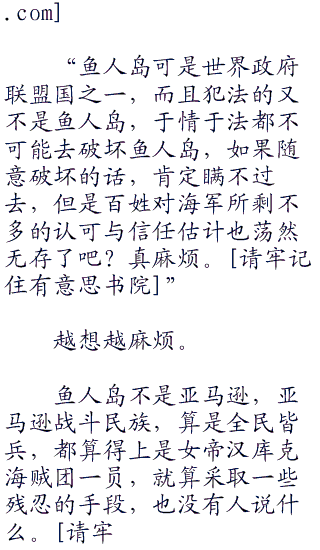 .com]
“鱼人岛可是世界政府
联盟国之一，而且犯法的又
不是鱼人岛，于情于法都不
可能去破坏鱼人岛，如果随
意破坏的话，肯定瞒不过
去，但是百姓对海军所剩不
多的认可与信任估计也荡然
无存了吧？真麻烦。[请牢记
住有意思书院]”
越想越麻烦。
鱼人岛不是亚马逊，亚
马逊战斗民族，算是全民皆
兵，都算得上是女帝汉库克
海贼团一员，就算采取一些
残忍的手段，也没有人说什
么。[请牢